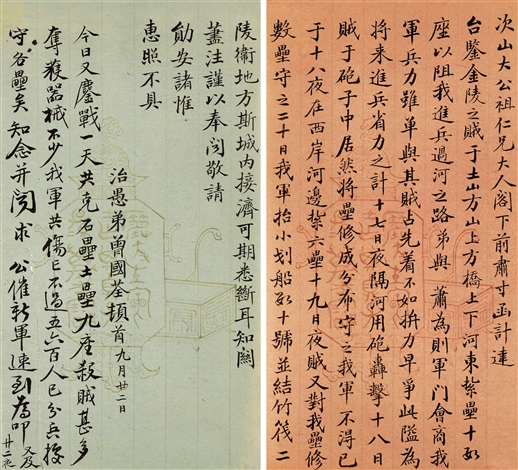 次山大公祖仁兄大人閣下前肅寸函計達
台鑒金陵之賊于土山方山上方橋上下河東紮壘十餘
座以阻我進兵過河之路弟與 蕭為則軍門會商我
軍兵力雖單與其賊占先着不如拚力早爭此隘為
將來進兵省力之計十七日夜隔河用砲轟擊十八日
賊于砲子中居然將壘修成分布守之我軍不得已
于十八夜在西岸河邊紮六壘十九日夜賊又對我壘修
數壘守之二十日我軍抬小划船數十號並結竹筏二
陵衛地方斯城內接濟可期悉斷耳知關
藎注謹以奉聞敬請
勛安諸惟
惠照不具
治愚弟曾國荃頓首九月廿二日
今日又鏖戰一天共克石壘土壘九座殺賊甚多
奪獲器械不少我軍共傷亡不過五六百人已分兵接
守各壘矣 知念并聞求 公催新軍速到為叩 又及
廿二夜